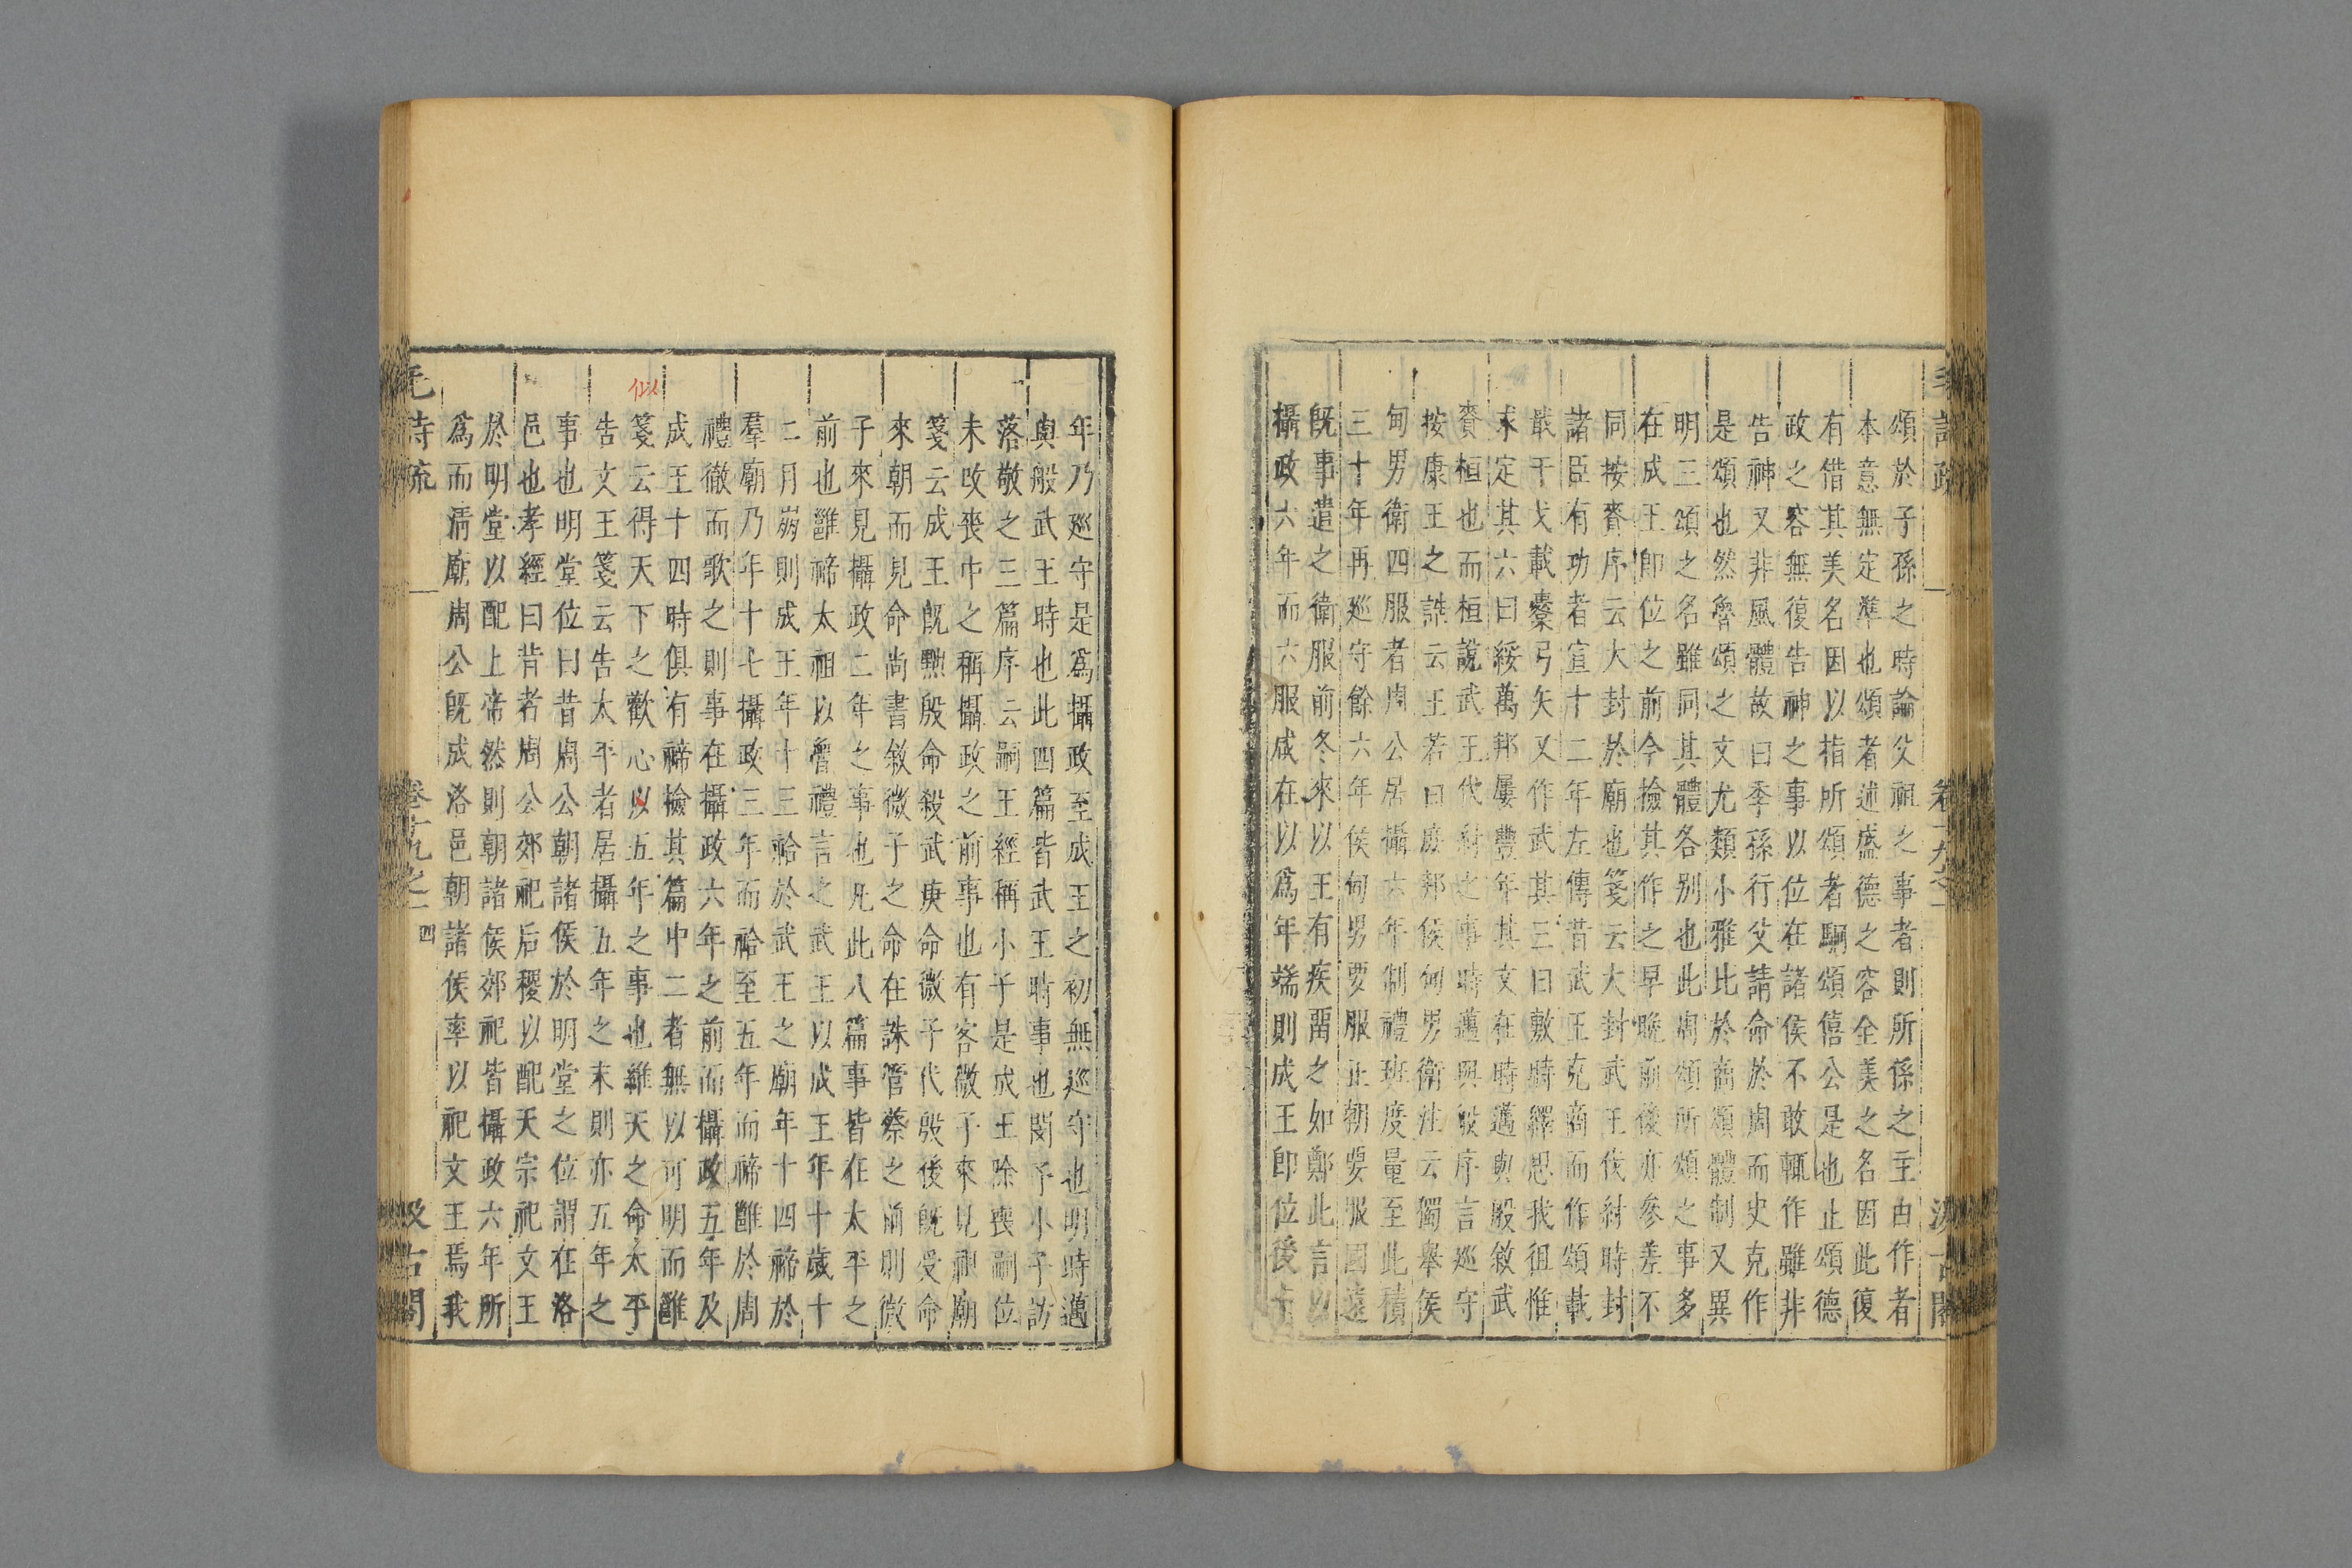 頌於子孫之時論父祖之事者則所係之主由作者
本意無定準也頌者述盛德之容全美之名因此復
有借其美名因以指所頌者駉頌僖公是也止頌德
政之容無復告神之事以位在諸侯不敢輒作雖非
告神又非風體故曰季孫行父請命於周而史克作
是頌也然魯頌之文尤類小雅比於商頌體制又異
明三頌之名雖同其體各別也此周頌所頌之事多
在成王即位之前今撿其作之早晚前後亦參差不
同按賚序云大封於廟也箋云大封武王伐紂時封
諸臣有功者宣十二年左傳昔武王克商而作頌載
戢干戈載櫜弓矢又作武其三曰敷時繹思我徂惟
求定其六曰綏萬邦屢豐年其文在時邁與般敘武
賚桓也而桓說武王伐紂之事時邁與般序言巡守
按康王之誥云王若曰庶邦侯甸男衛注云獨舉侯
甸男衛四服者周公居攝六年制禮班度量至此積
三十年再巡守餘六年侯甸男要服正朝要服國遠
旣事遣之衛服前冬來以王有疾畱之如鄭此言以
攝政六年而六服咸在以爲年端則成王即位後十
年乃巡守是爲攝政至成王之初無巡守也明時邁
與般武王時也此四篇皆武王時事也閔予小子訪
落敬之三篇序云嗣王經稱小子是成王除喪嗣位
未改喪中之稱攝政之前事也有客微子來見祖廟
箋云成王旣黜殷命殺武庚命微子代殷後旣受命
來朝而見命尚書敘微子之命在誅管蔡之前則微
子來見攝政二年之事也凡此八篇事皆在太平之
前也雝禘太祖以魯禮言之武王以成王年十歲十
二月崩則成王年十三祫於武王之廟年十四禘於
羣廟乃年十七攝政三年而祫至五年而禘雝於周
禮徹而歌之則事在攝政六年之前而攝政五年及
成王十四時俱有禘撿其篇中二者無以可明而雝
箋云得天下之歡心以五年之事也維天之命太平
告文王箋云告太平者居攝五年之末則亦五年之
事也明堂位曰昔周公朝諸侯於明堂之位謂在洛
邑也孝經曰昔者周公郊祀后稷以配天宗祀文王
於明堂以配上帝然則朝諸侯郊祀皆攝政六年所
爲而清廟周公旣成洛邑朝諸侯率以祀文王焉我
似
毛詩疏 卷十九之一 四 汲古閣